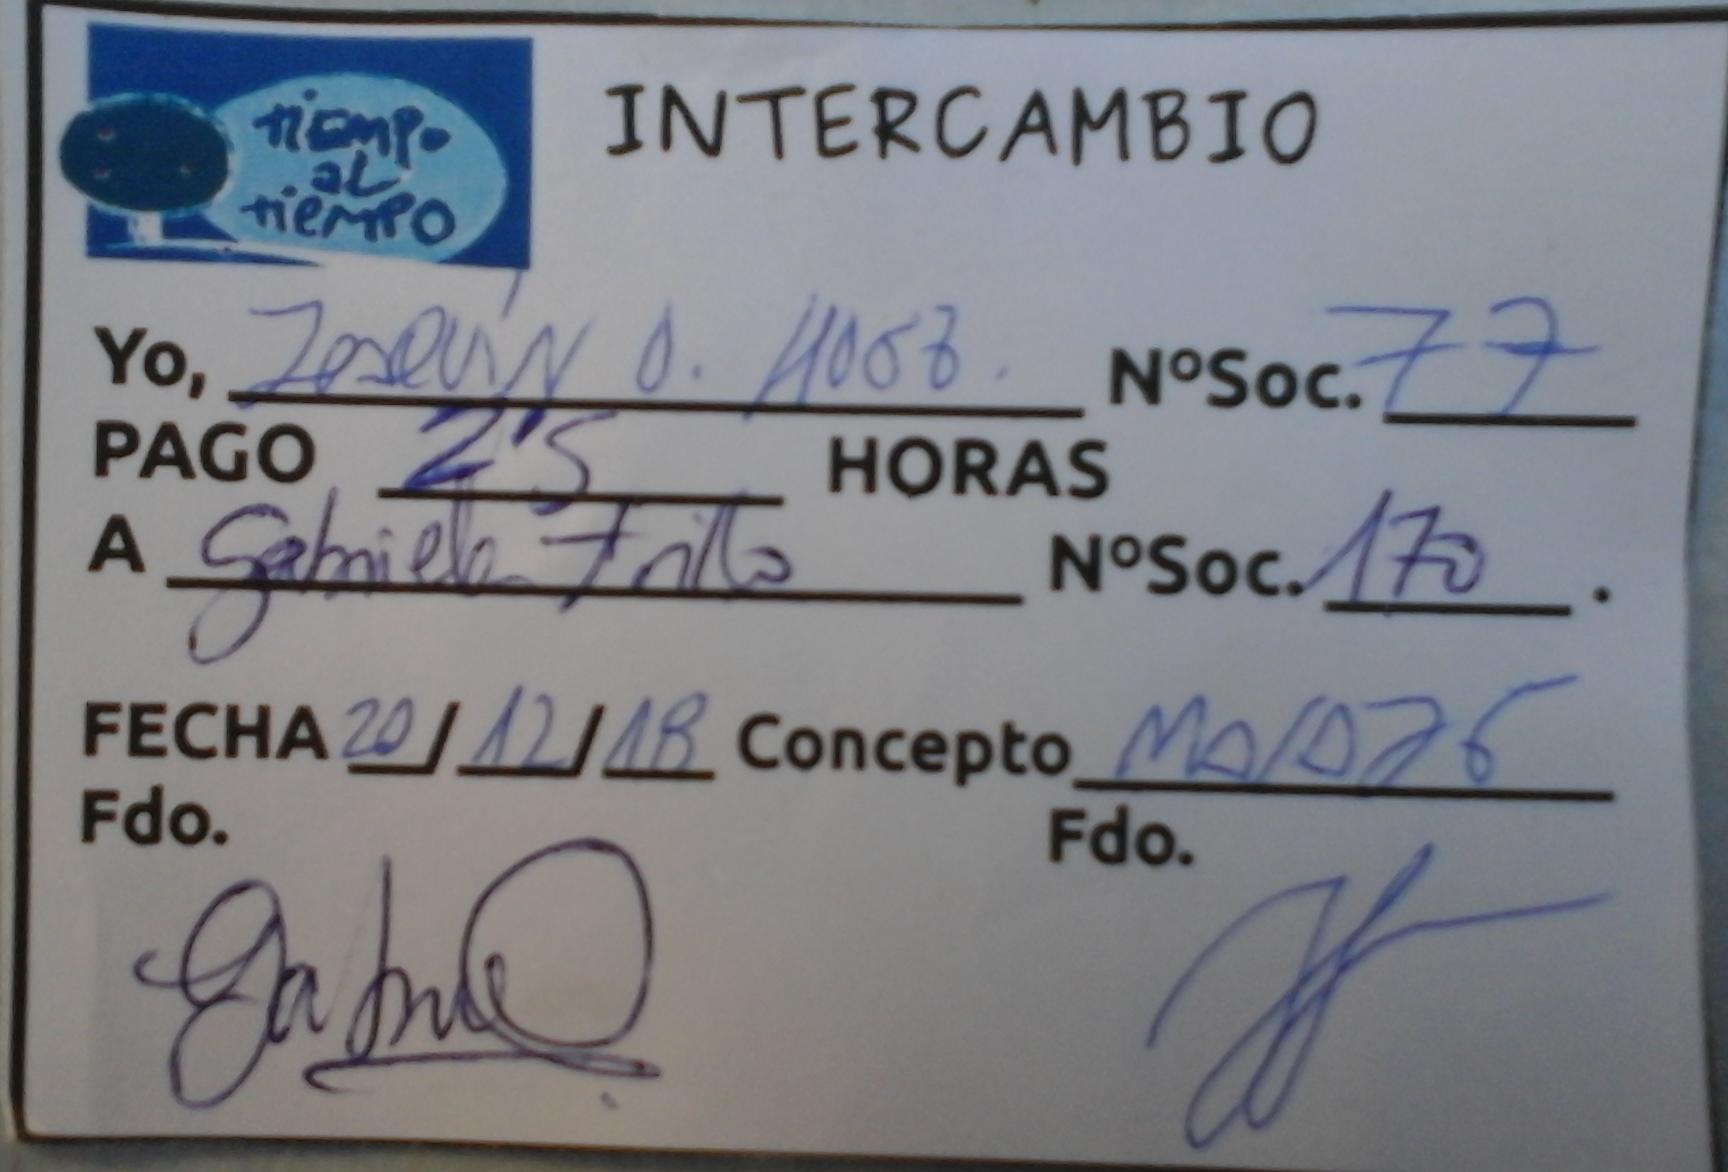 tiempo
al
tiempo
INTERCAMBIO
Yo, Joaquín O. NºSoc. 77
PAGO 2'5 HORAS
A Gabriela NºSoc. 170.
FECHA 20/12/18 Concepto
Fdo. Fdo.